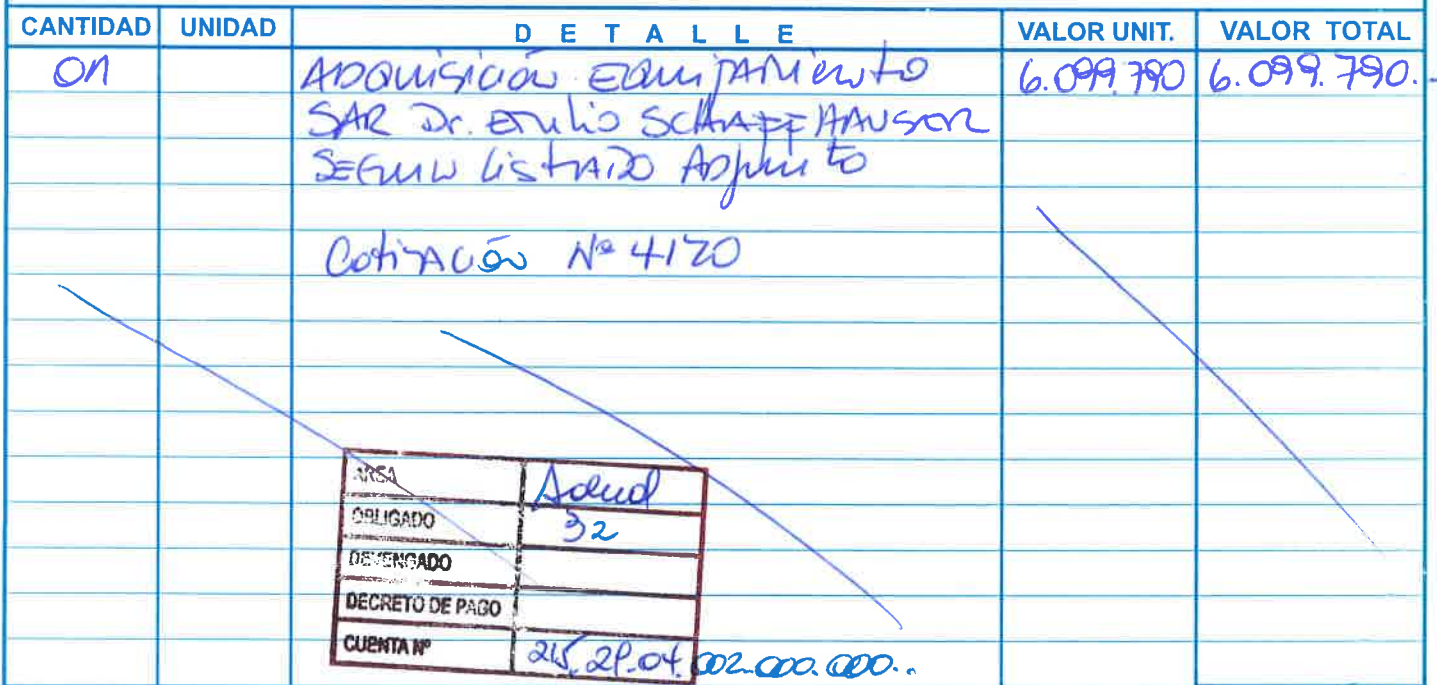 CANTIDAD UNIDAD DETALLE VALOR UNIT. VALOR TOTAL
01 ADQUISICIÓN EQUIPAMIENTO 6.099.790 6.099.790.-
SAR Dr. EMILIO SCHAFFHAUSER
SEGUN LISTADO ADJUNTO
Cotización Nº 4120
AREA Salud
OBLIGADO 32
DEVENGADO
DECRETO DE PAGO
CUENTA Nº 215.29.04.002.000.000..